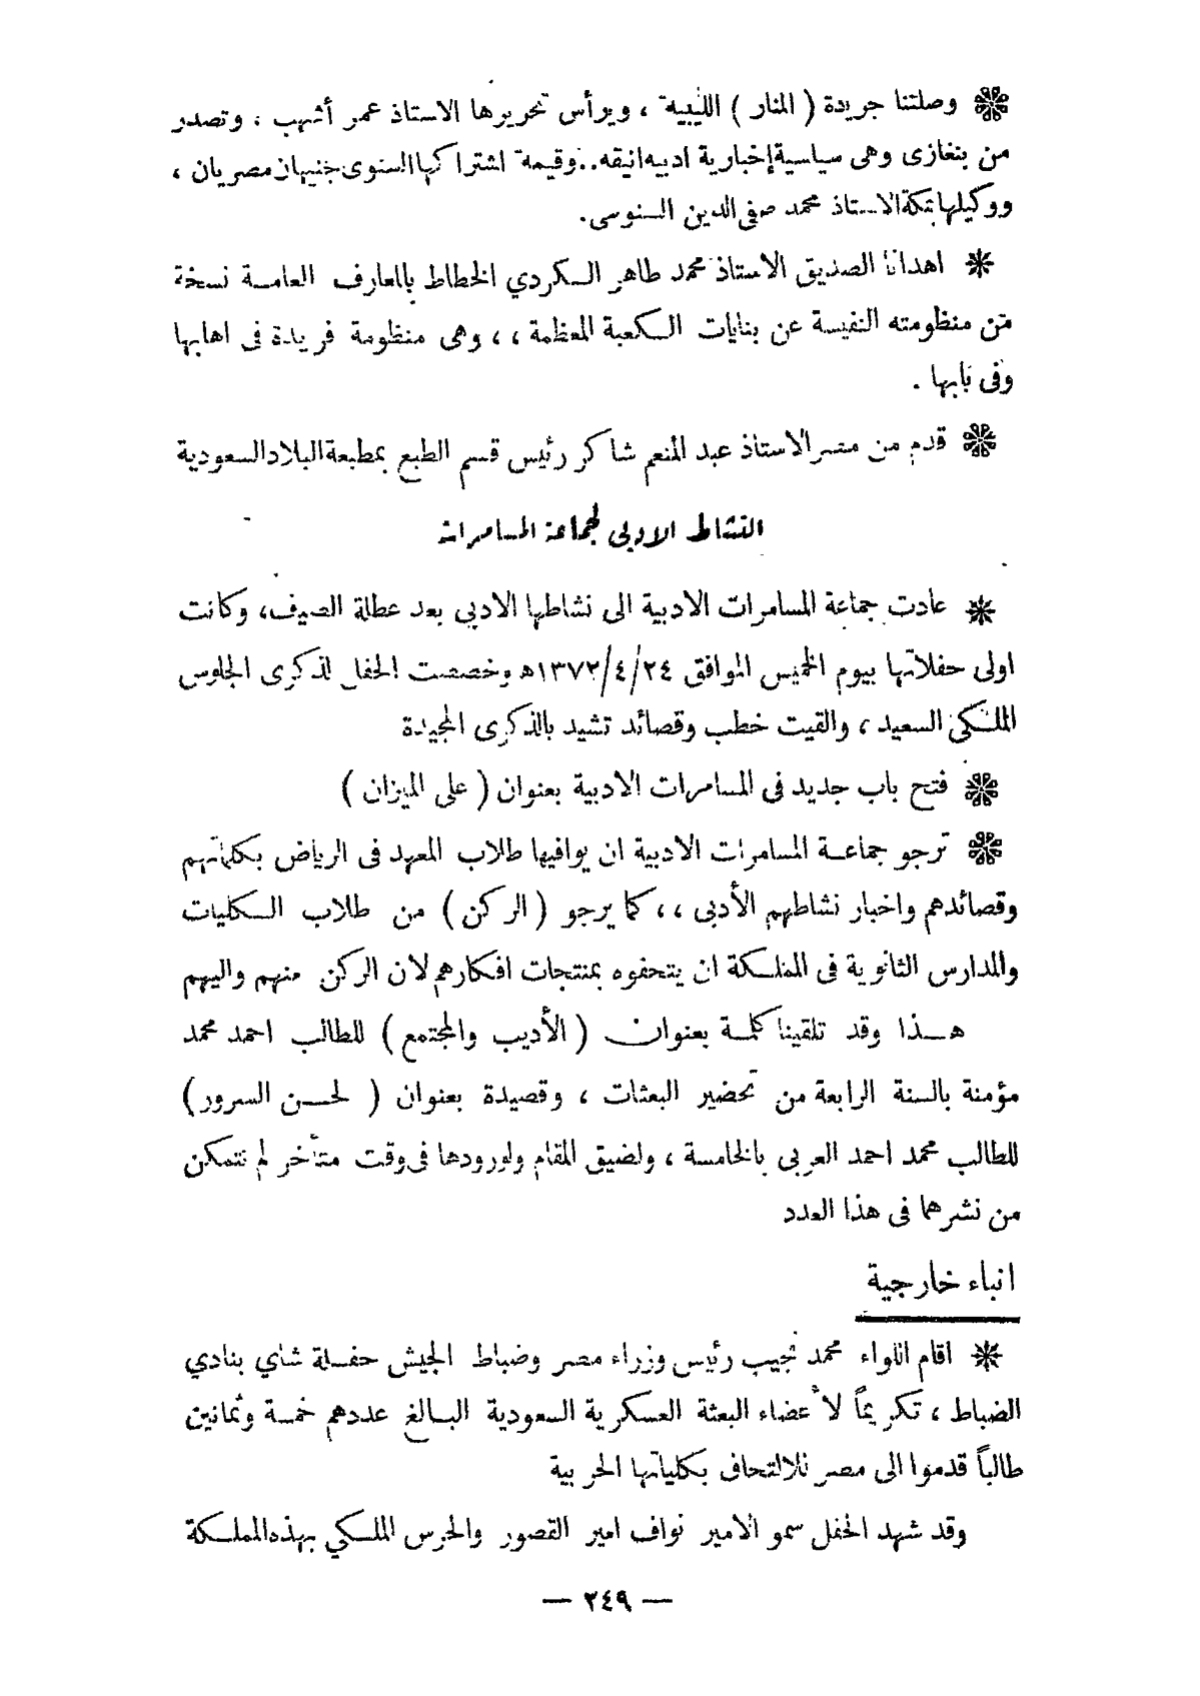 ❊ وصلتنا جريدة ( المنار ) الليبية ، ويرأس تحريرها الاستاذ عمر أشهب ، وتصدر
من بنغازى وهى سياسية إخبارية ادبيه انيقه .. وقيمة اشتراكها السنوى جنيهان مصريان ،
ووكيلها بمكة الاستاذ محمد صفى الدين السنوسى .
❊ اهدانا الصديق الاستاذ محمد طاهر الكردي الخطاط بالمعارف العامة نسخة
من منظومته النفيسة عن بنايات الكعبة المعظمة ، ، وهى منظومة فريدة فى اهابها
وفى بابها .
❊ قدم من مصر الاستاذ عبد المنعم شاكر رئيس قسم الطبع بمطبعة البلاد السعودية
النشاط الادبى لجماعة المسامرات
❊ عادت جماعة المسامرات الادبية الى نشاطها الادبي بعد عطلة الصيف، وكانت
اولى حفلاتها بيوم الخميس الموافق ٢٤/٤/١٣٧٢ه وخصصت الحفل لذكرى الجلوس
الملكى السعيد ، والقيت خطب وقصائد تشيد بالذكرى المجيدة
❊ فتح باب جديد فى المسامرات الادبية بعنوان ( على الميزان )
❊ ترجو جماعة المسامرات الادبية ان يوافيها طلاب المعهد فى الرياض بكلماتهم
وقصائدهم واخبار نشاطهم الأدبى ، ، كما يرجو ( الركن ) من طلاب الكليات
والمدارس الثانوية فى المملكة ان يتحفوه بمنتجات افكارهم لان الركن منهم واليهم
هذا وقد تلقينا كلمة بعنوان ( الأديب والمجتمع ) للطالب احمد محمد
مؤمنة بالسنة الرابعة من تحضير البعثات ، وقصيدة بعنوان ( لحن السرور )
للطالب محمد احمد العربى بالخامسة ، ولضيق المقام ولورودها فى وقت متأخر لم نتمكن
من نشرهما فى هذا العدد
انباء خارجية
❊ اقام اللواء محمد نجيب رئيس وزراء مصر وضباط الجيش حفلة شاي بنادي
الضباط ، تكريماً لأعضاء البعثة العسكرية السعودية البالغ عددهم خمسة وثمانين
طالباً قدموا الى مصر للالتحاق بكلياتها الحربية
وقد شهد الحفل سمو الامير نواف امير القصور والحرس الملكي بهذه المملكة
— ٢٤٩ —